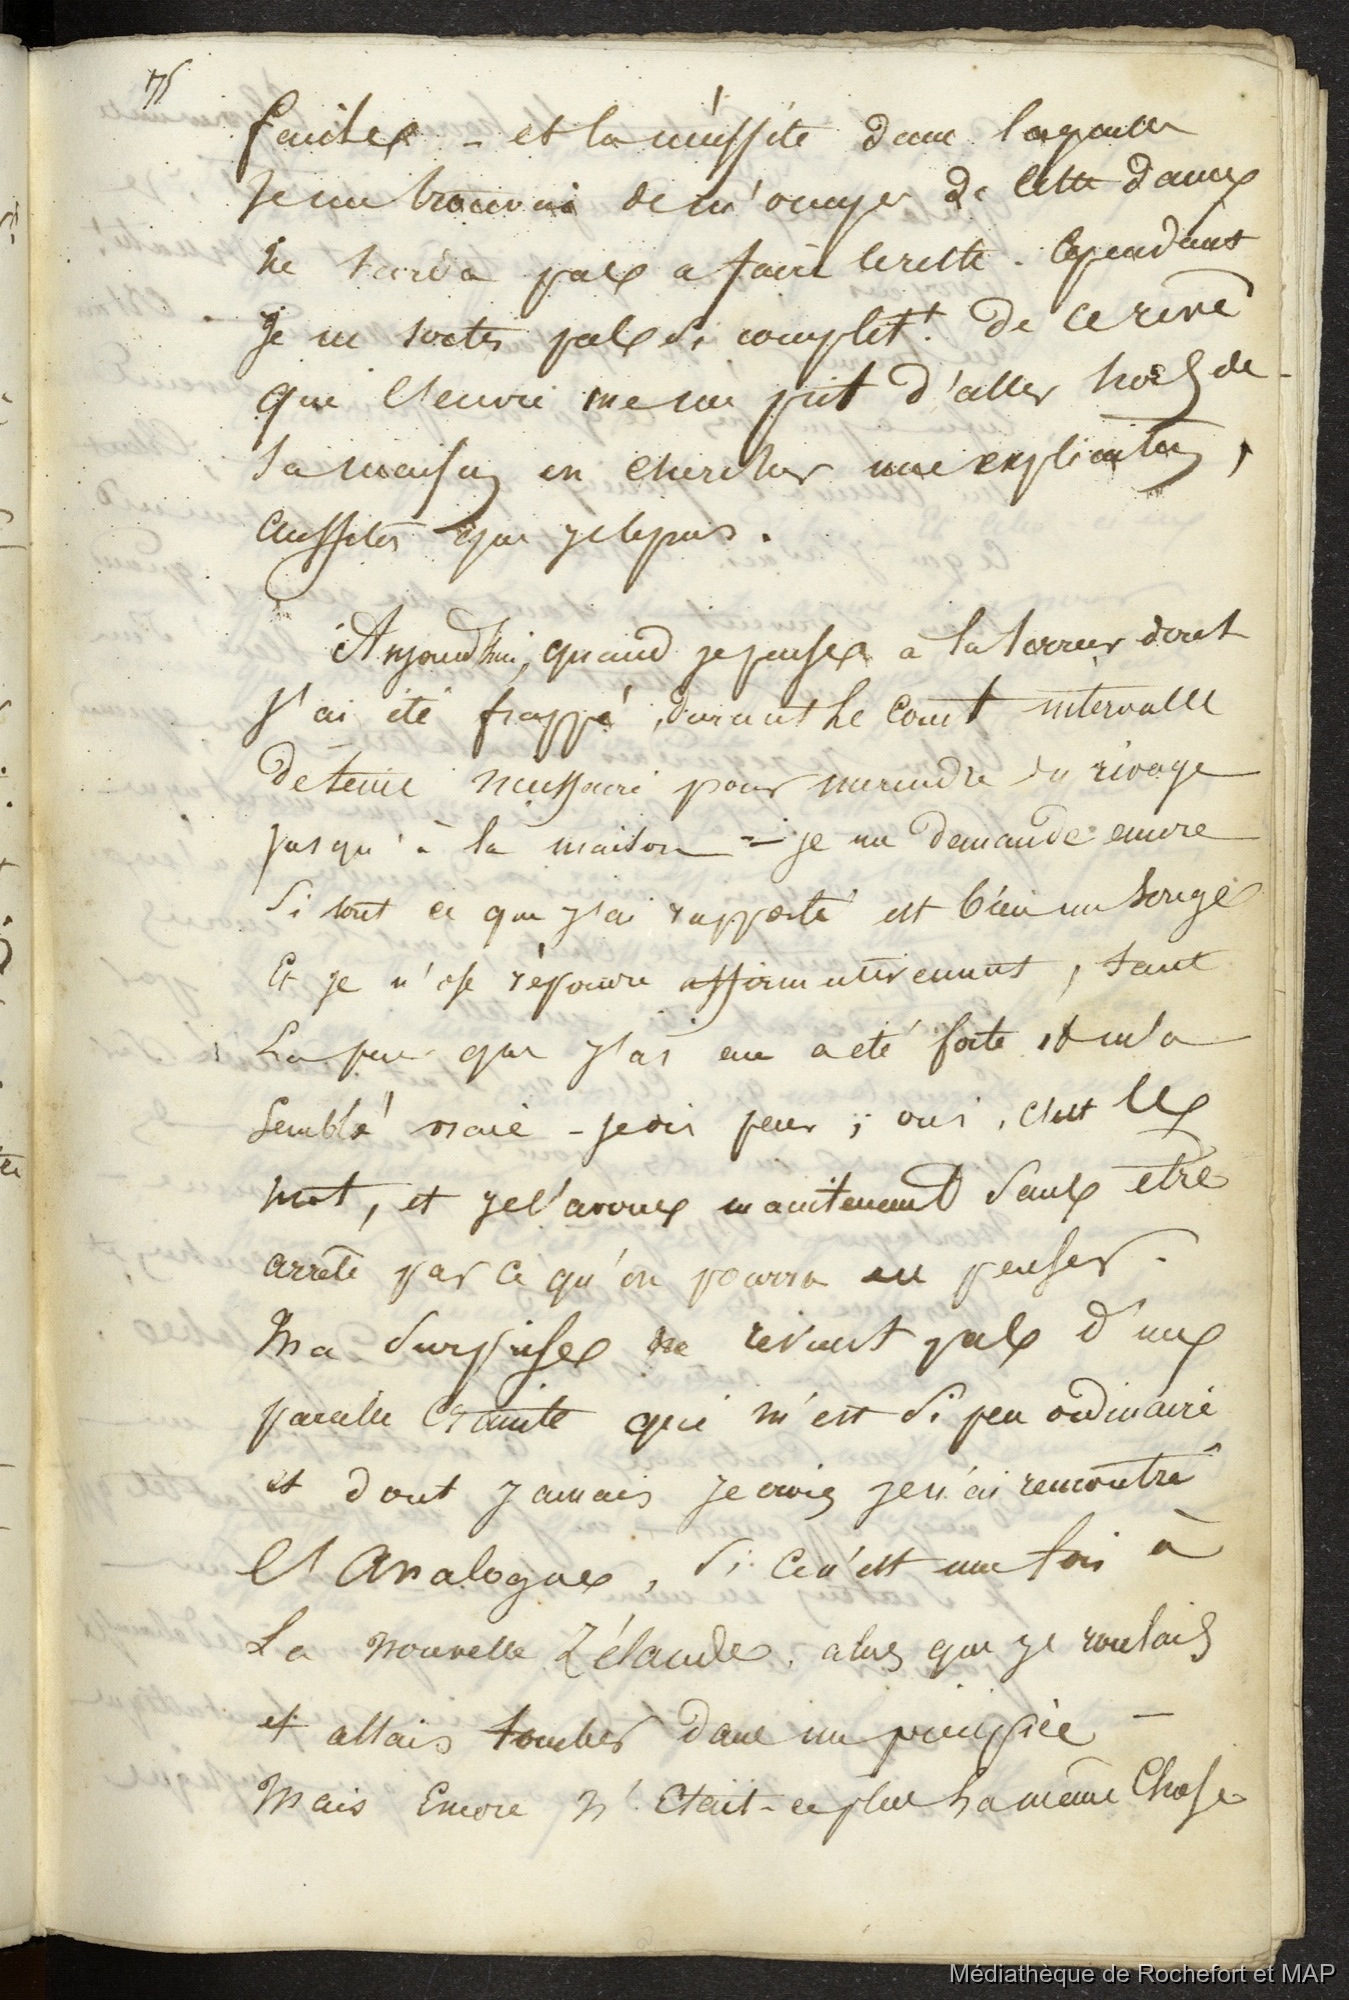 75
faciles - et la nécessité dans laquelle
je me trouvai de m'occuper de cette dame
ne tarda pas a faire le reste. Cependant
je ne sortis pas si complett. de ce rêve
que l'envie ne me prit d'aller hors de
sa maison en chercher une explication,
aussitôt que je le pus.
Aujourdhui, quand je pense a la terreur dont
j'ai été frappé, durant le court intervalle
de tems necessaire pour me rendre du rivage
jusqu'à la maison = je me demande encore
si tout ce que j'ai rapporté est bien un songe
Et je n'ose répondre affirmativement, tant
la peur que j'ai eue a été forte et m'a
semblé vraie - je dis peur ; oui, c'est le
mot, et je l'avoue maintenant sans être
arrêté par ce qu'on pourra en penser.
Ma surprise ne revient pas d'une
pareille crainte qui m'est si peu ordinaire
et dont jamais je crois je n'ai rencontré
l'analogue, si ce n'est une fois à
La nouvelle Zélande, alors que je roulais
et allais tomber dans un précipice -
Mais Encore n'était-ce plus la même Chose
Médiathèque de Rochefort et MAP